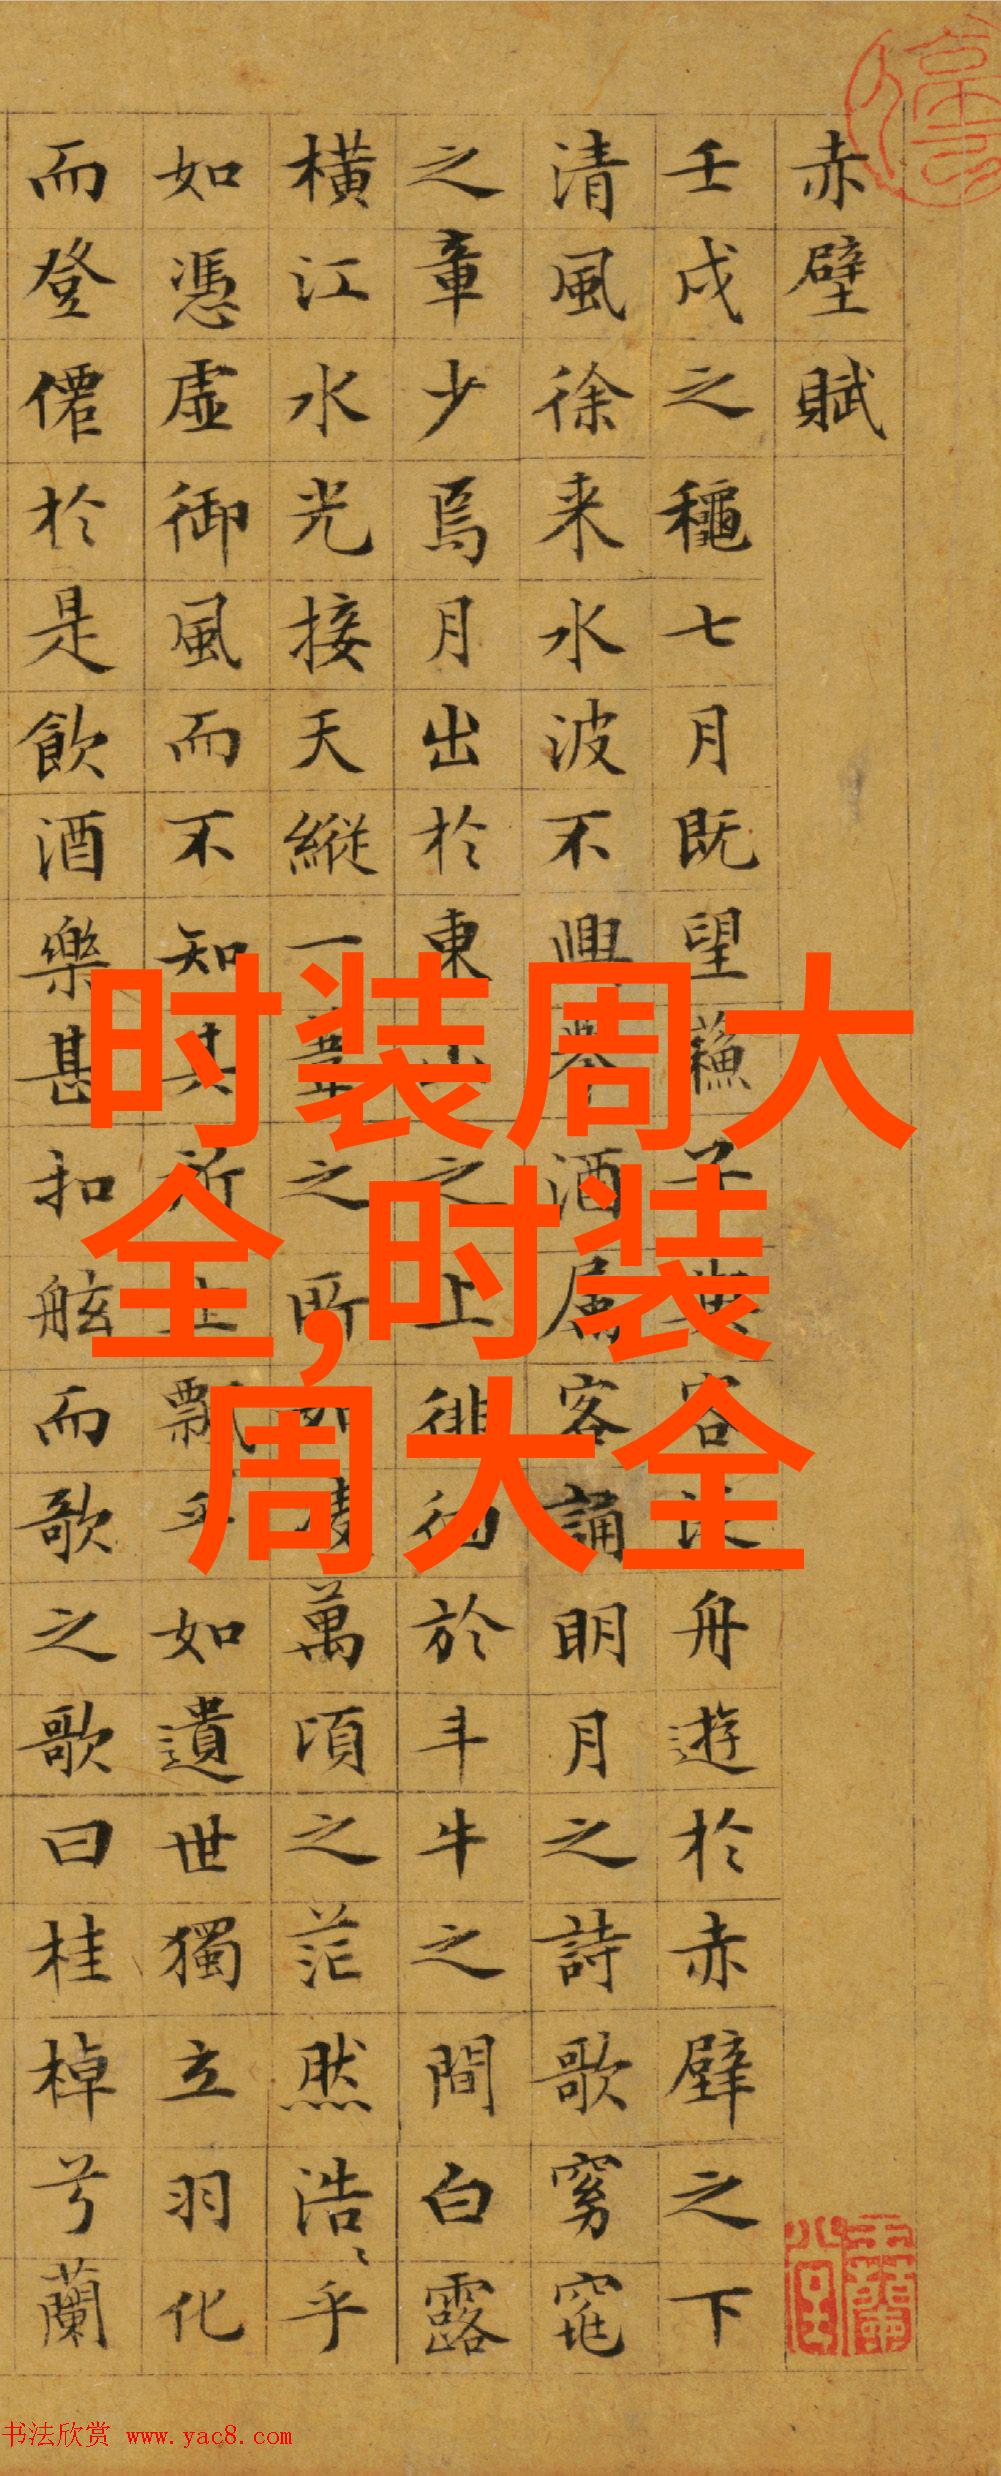 赤壁賦
壬戌之龝七月既望蘓子與客泛舟遊於赤壁之下
清風徐来水波不興舉酒屬客誦明月之詩歌窈窕
之章少焉月出於東山之上徘徊於斗牛之間白露
横江水光接天縱一葦之所如凌萬頃之茫然浩〻乎
如憑虛御風而不知其所止飄乎如遺世獨立羽化
而登僊於是飲酒樂甚扣舷而歌之歌曰桂棹兮蘭
时装周大
全,时装
周大全
书法欣赏 www.yac8.com